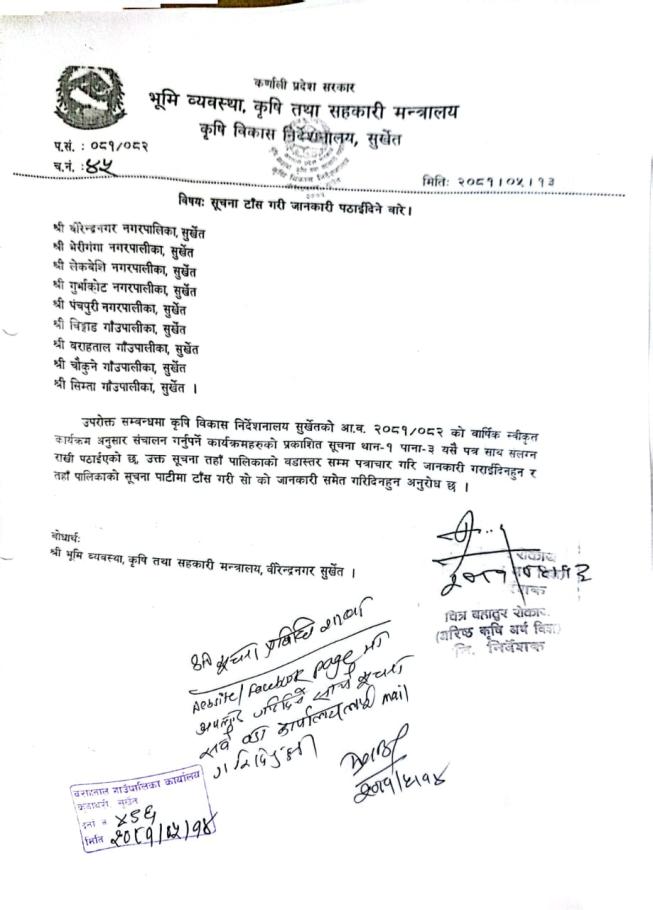 कर्णाली प्रदेश सरकार
भूमि व्यवस्था, कृषि तथा सहकारी मन्त्रालय
कृषि विकास निर्देशनालय, सुर्खेत
प.सं. : ०८१/०८२
च.नं. : ४५
मितिः २०८१।०५।१३
विषयः सूचना टाँस गरी जानकारी पठाईदिने बारे।
श्री बीरेन्द्रनगर नगरपालिका, सुर्खेत
श्री भेरीगंगा नगरपालीका, सुर्खेत
श्री लेकबेशि नगरपालीका, सुर्खेत
श्री गुर्भाकोट नगरपालीका, सुर्खेत
श्री पंचपुरी नगरपालीका, सुर्खेत
श्री चिङ्गाड गाँउपालीका, सुर्खेत
श्री बराहताल गाँउपालीका, सुर्खेत
श्री चौकुने गाँउपालीका, सुर्खेत
श्री सिम्ता गाँउपालीका, सुर्खेत ।
उपरोक्त सम्बन्धमा कृषि विकास निर्देशनालय सुर्खेतको आ.व. २०८१/०८२ को वार्षिक स्वीकृत
कार्यक्रम अनुसार संचालन गर्नुपर्ने कार्यक्रमहरुको प्रकाशित सूचना थान-१ पाना-३ यसै पत्र साथ सलग्न
राखी पठाईएको छ, उक्त सूचना तहाँ पालिकाको वडास्तर सम्म पत्राचार गरि जानकारी गराईदिनहुन र
तहाँ पालिकाको सूचना पाटीमा टाँस गरी सो को जानकारी समेत गरिदिनहुन अनुरोध छ ।
बोधार्थः
श्री भूमि व्यवस्था, कृषि तथा सहकारी मन्त्रालय, वीरेन्द्रनगर सुर्खेत ।
चित्र बहादुर रोकाया
(वरिष्ठ कृषि अर्थ विज्ञ)
नि. निर्देशक
श्री सूचना प्रविधि शाखा
Website/Facebook page मा
अपलोड गरिदिने साथै सूचना
सबै वडा कार्यालयलाई mail
गरिदिनुहुन
२०८१/५/१४
बराहताल गाउँपालिका कार्यालय
सुर्खेत
दर्ता नं ४९६
मिति २०८१/०५/१४